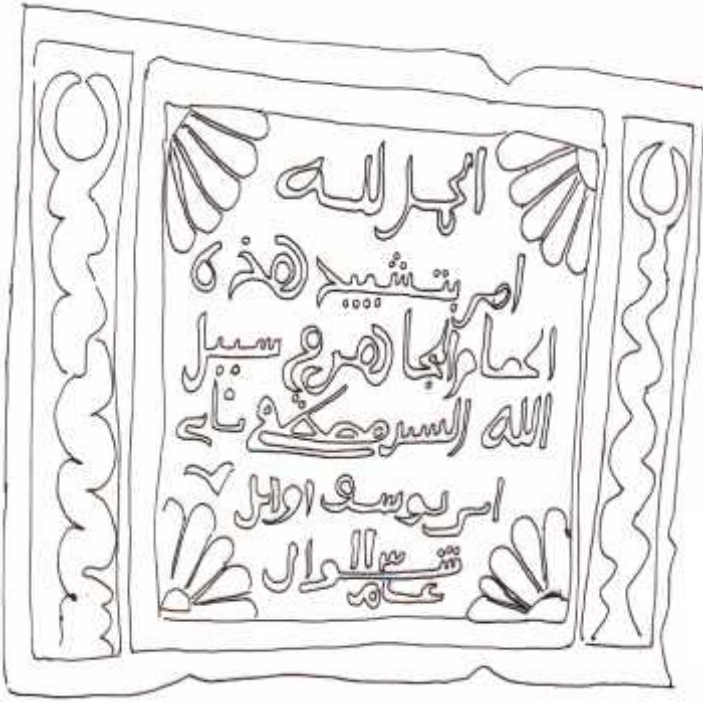 الحمد لله
امر بتشييد هذه
المجاهد في سبيل
الله السيد مصطفى باي
ابن يوسف اوايل
شوال
عام